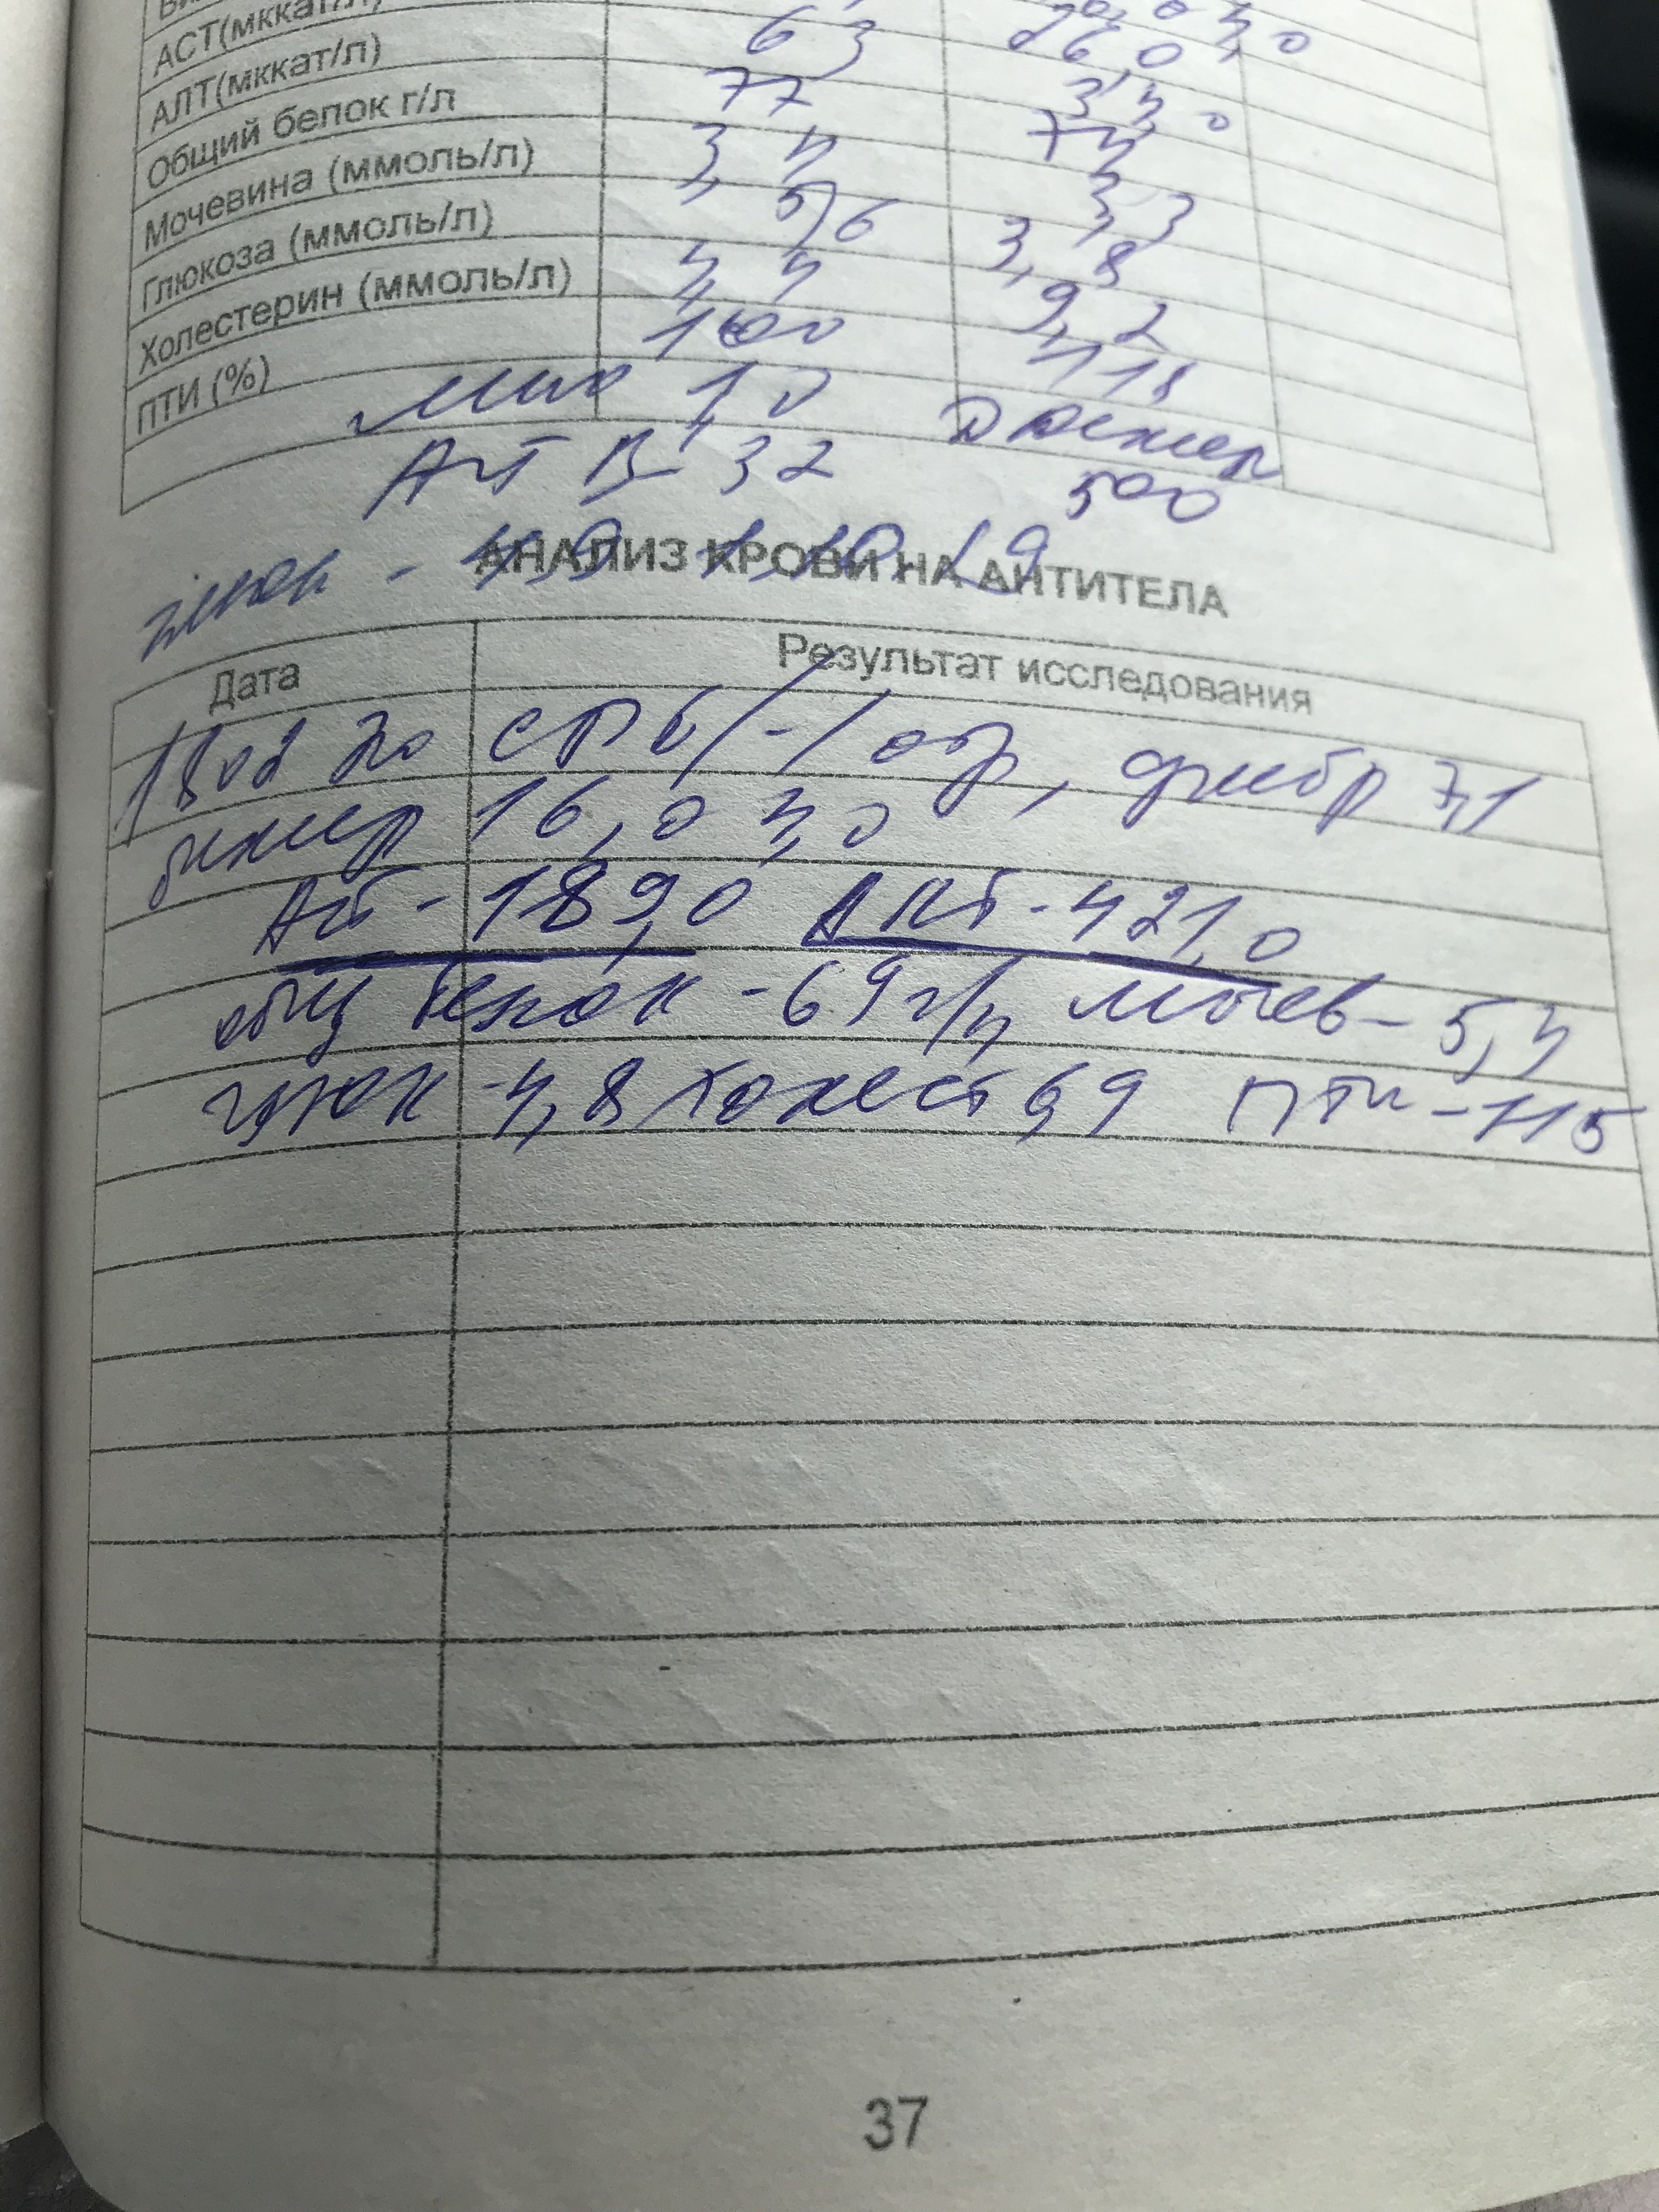 АСТ(мккат/л)
АЛТ(мккат/л) 63 26,0
Общий белок г/л 77
Мочевина (ммоль/л) 3,4 74
Глюкоза (ммоль/л) 5,6 3,3
Холестерин (ммоль/л) 4,4 3,8
ПТИ (%) 100 9,2
118
мно 1,0 Д Димер
АЧТВ- 32 500
глюк - 4,9
АНАЛИЗ КРОВИ НА АНТИТЕЛА
Дата Результат исследования
18 02 20 СРБ /-/ отр, фибр 7,1
билир 16,0 4,0
Аст - 189,0 Алт - 421,0
общ белок - 69 г/л мочев - 5,4
глюк - 4,8 холест 6,9 ПТИ - 115
37